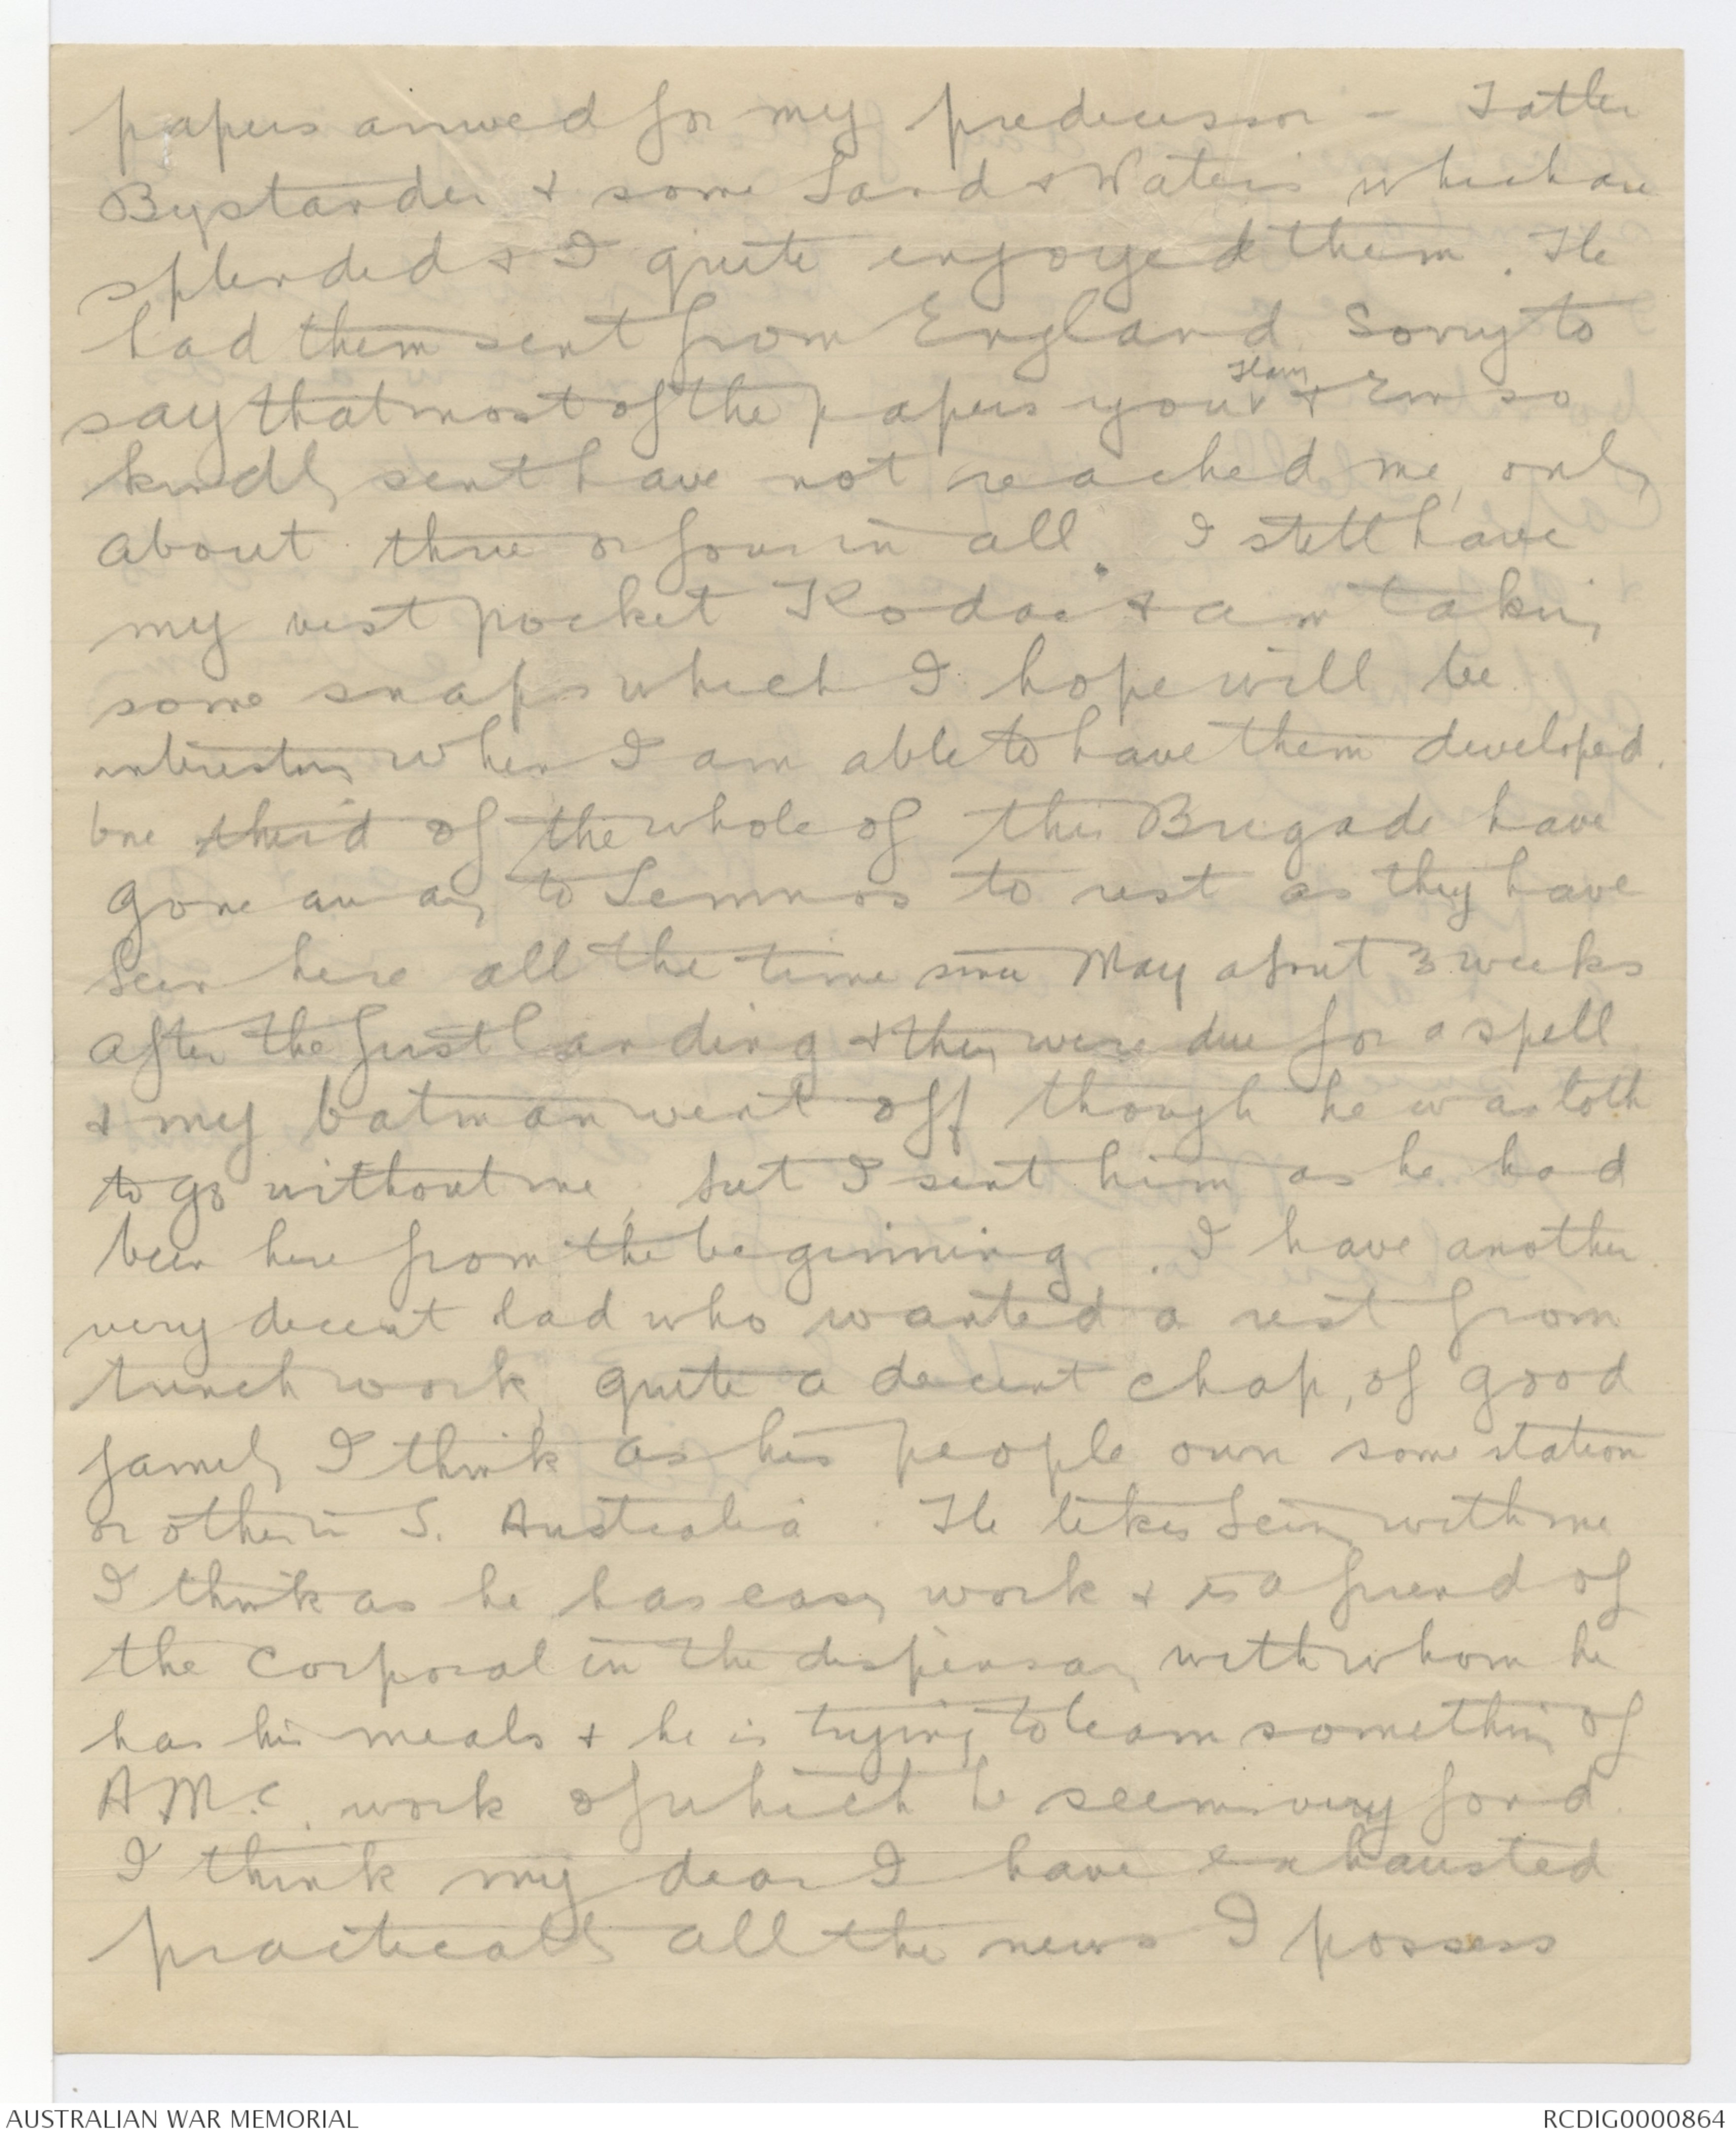 papers arrived for my predecessor - Tatler
Bystander & some Land & Waters which are
splendid & I quite enjoyed them. He
had them sent from England. Sorry to
say that most of the papers you & Em so
kindly sent have not reached me, only
about three or four in all. I still have
my vest pocket Kodac & am taking
some snaps which I hope will be
interesting when I am able to have them developed.
One third of the whole of this Brigade have
gone away to Lemnos to rest as they have
been here all the time since May about 3 weeks
after the first landing & they were due for a spell
& my batman went off though he was loth
to go without me, but I sent him as he had
been here from the beginning. I have another
very decent lad who wanted a rest from
trench work, quite a decent chap, of good
family I think as his people own some station
or other in S. Australia. He likes being with me
I think as he has easy work & is a friend of
the corporal in the dispensary with whom he
has his meals & he is trying to learn something of
A.M.C. work of which he seems very fond.
I think my dear I have exhausted
practically all the news I possess
AUSTRALIAN WAR MEMORIAL
RCDIG0000864